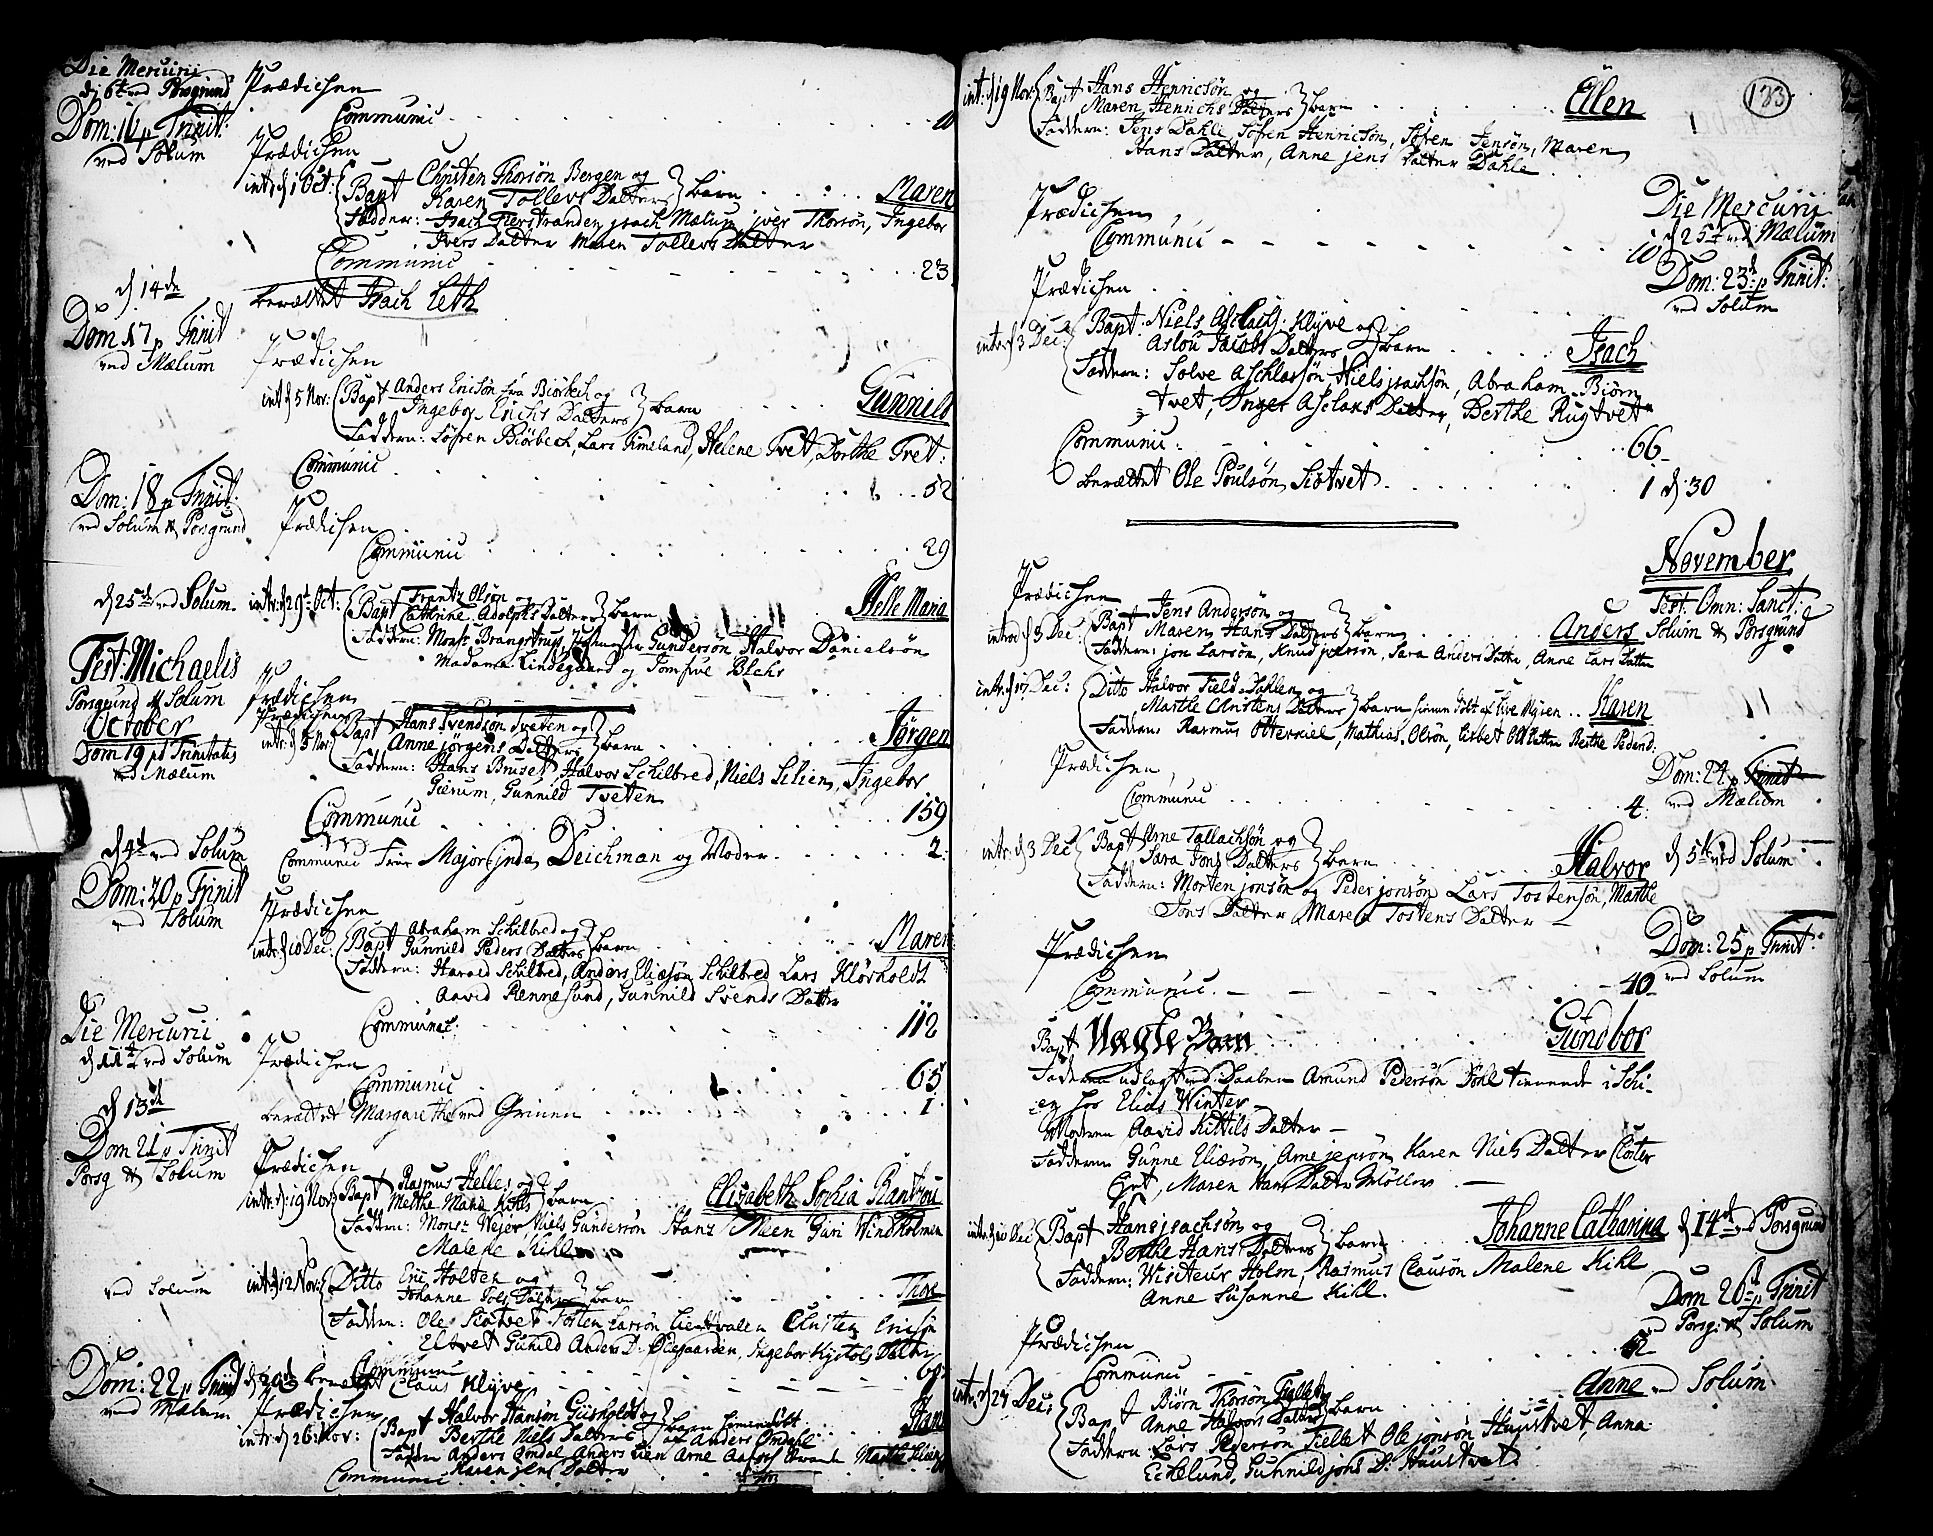 Die Mercurii
d. 6t ved Porsgrund Prædichen
Communic . . . 11
Dom: 16 p Trinit:
ved Solum Prædichen
intr: d. 1 Oct: Bapt Christen Thorsøn Bergen og
Karen Tollevs Datters barn . . . Maren
Faddere: Isach Fierstranden, Isach Mælum, Iver Thorsøn, Ingebor
Ivers Datter Maren Tollevs Datter
Communic . . . 23
d. 14de berættet Isach Leth
Dom 17 p Trinit
ved Mælum Prædichen
intr d 5 Nov: Bapt Anders Ericsøn fra Biørbech og
Ingebor Erichs Datters barn . . . Gunnild
Faddern: Søfren Biøbech, Lars Limeland, Helene Tvet, Dorthe Tvet:
Communic . . . 52
Dom: 18 p Trinit:
ved Solum & Porsgrund Prædichen
Communic . . . 29
d 25t ved Solum. intr: d 29t Oct: Bapt Frantz Olsøn og
Cathrine Adolphs Datters barn . . . Helle Maria
Faddern: Monsr Brangstrup, Gundersøn Halvor Danielsøn
Madame Lindegaard og Jomfrue Blahr
Fest: Michaelis
Porsgrund & Solum Prædichen
October Prædichen
Dom 19 p Trinitatis
ved Mælum
intr: d 5 Nov: Bapt Hans Svendsøn Tveten og
Anne Jørgens Datters barn . . . Jørgen
Faddern: Hans Bruset, Halvor Schilbred, Niels Lilien, Ingebor
Gierum, Gunnild Tveten
Communic . . . 159
d 4t ved Solum Communic Frue Majorinde Deichman og Moder . . . 2:
Dom: 20 p Trinit
ved Solum Prædichen
intr: d 10 Dec: Bapt Abraham Schilbred og
Gunnild Peders Datters barn . . . Maren
Faddern: Harald Schilbred, Anders Eliesøn Schilbred Lars Klørholdt
Aavid Rennesund, Gunnild Svends Datter
Communic: . . . 112
Die Mercurii
d 11t ved Solum Prædichen
Communic . . . 65
d 13de berættet Margarethe ved Grinien . . . 1.
Dom 21 p Trinit
Porsg & Solum Prædichen
intr: d: 19 Nov: Bapt Rasmus Helles og
Mette Maria Kihls barn . . . Elisabeth Sophia Rantzou
Faddern: Monsr Wejer, Niels Gundersøn Hans Nien Guri Windholmen
Malene Kihl
ved Solum intr: d 12 Nov: Ditto Eric Holten og
Johanne Pols Datters barn . . . Thore
Faddern: Ole Siøtvet Tosten Larsøn Lierdvalen Christen Ericsøn
Eltvet Gunild Anders D: Ølegaarden, Ingebor Kystols Datter
Communic . . . 60:
Dom: 22 p Trinit d 20de berættet Claus Klyve
ved Mælum Prædichen
intr: d 26 Nov: Bapt Halvor Hansøn Gisholdt og
Berthe Niels Datters barn hiemedøbt . . . Hans
af Anders Omdahl
Faddern Anders Omdal Anders Lien Arne Marthe Lilien
Karen Jens Datter
Communic
123
intr: d 19 Nov: Bapt Hans Henricsøn og
Maren Henrichs Datters barn . . . Ellen
Faddern: Jens Dahle, Søfren Henricsøn, Søfren Jensøn, Maren
Hans Datter, Anne Jens Datter Dahle
Prædichen Die Mercurii
d 25t ved Mælum
Communic . . . 10
Prædichen Dom: 23 p Trinit:
ved Solum
intr: d 3 Dec: Bapt: Niels Aslachs: Klyve og
Aslou Jacobs Datters barn . . . Isach
Faddern: Solve Aschlassøn, Niels Isachsøn, Abraham Biørn
tvet, Inger Aslaks Datter, Berthe Rugtvet
Communic: . . . 66
berættet Ole Poulsøn Siøtvet . . . 1 d: 30
November
Prædichen Fest: Omn: Sanct:
Solum & Porsgrund
introd d 3 Dec: Bapt Jens Andersøn og
Maren Hans Datters barn . . . Anders
Faddern: Jon Larsøn, Knud Jensøn, Sara Anders Datter, Anne Lars Datter
intr: d 17 Dec: Ditto Halvor Field Dahlen og
Marthe Christens Datters barn hiemme døbt af Live Myren . . Karen
Faddern: Rasmus Otterkiel, Mathias Olsøn, Lisbet Ols Datter Berthe Peders D:
Prædichen Dom: 24 p Trinit
ved Mælum
Communic . . . 4:
intr: d 3 Dec Bapt Arne Tallachsøn og
Sara Jons Datters barn . . . Halvor d 5t ved Solum
Faddern: Morten Jonsøn og Peder Jonsøn Lars Tostensøn, Marthe
Jons Datter Maren Tostens Datter
Prædichen Dom: 25 p Trinit
ved Solum
Communic. . . . 40
Bapt Uægte Barn . . . Gundbor
Faderen udlagt ved Daaben Amund Pedersøn Døhl tienende i Schi-
en hos Elias Winter
Moderen Aavid Kittils Datter
Faddern Gunne Eliesøn, Arne Jensøn Karen Niels Datter Closter
Eyet, Maren Hans Datter Møller
intr: d 10 Dec Bapt Hans Isachsøn og
Berthe Hans Datters barn . . . Johanne Catharina d 14de ved Porsgrund
Faddern: Visiteur Holm, Rasmus Clausøn Malene Kihl
Anne Susanne Kihl.
Dom 26 p Trinit
ved Porsg: & Solum
Prædichen
Communic . . . 62
intr: d 27 Dec: Bapt Biørn Thorsøn Fiellet
Anne Halvors Datters barn . . . Anne ved Solum
Faddern: Lars Pedersøn Fiellet Ole Jonsøn Haustvet, Anna
Eckelund, Gunnild Jons D: Haustvet